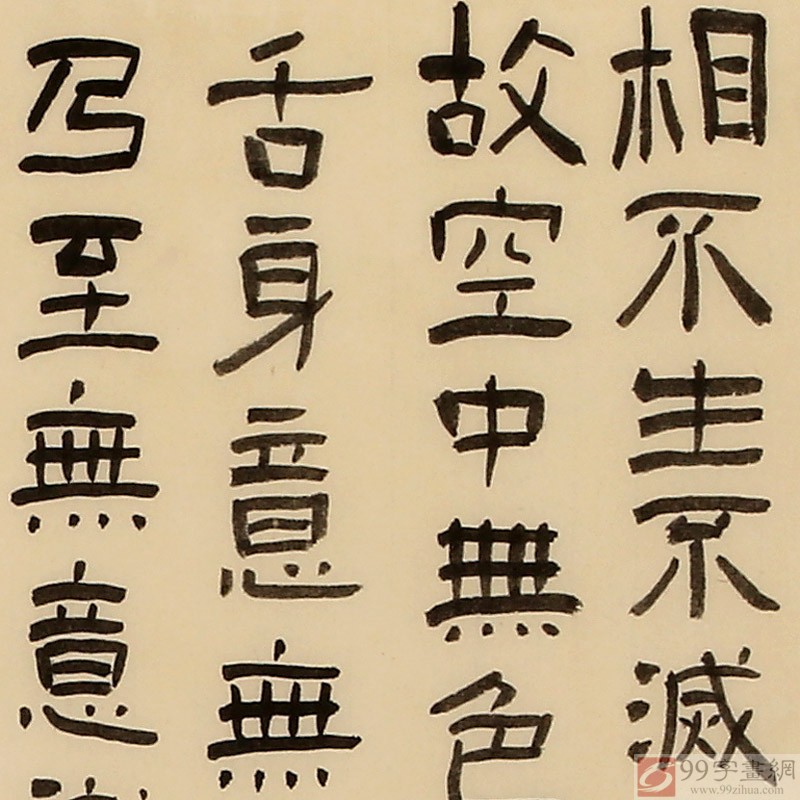 相不生不滅
故空中無色
舌身意無
乃至無意
99字畫網
www.99zihua.com